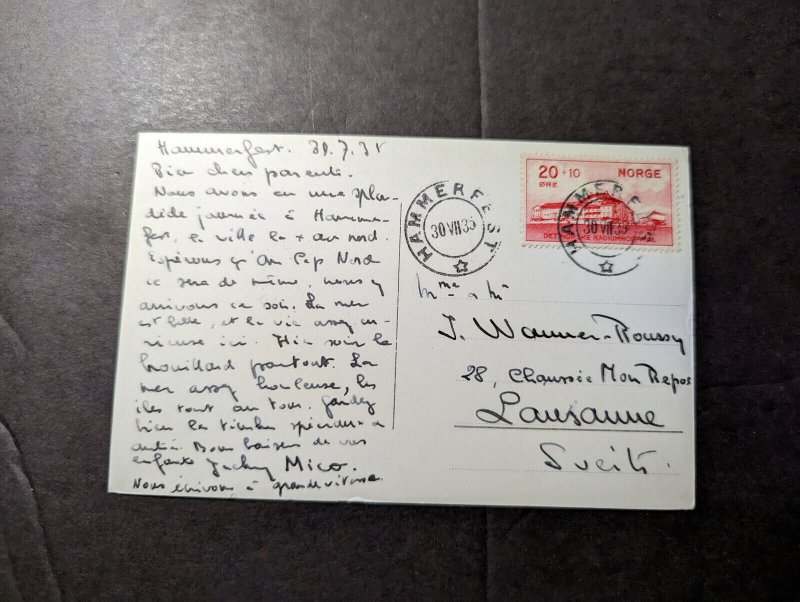 Hammerfest. 30.7.35
Bien chers parents.
Nous avons eu une splen-
dide journée à Hammer-
fest, la ville la + au nord.
Espérons qu'au Cap Nord
ce sera de même, nous y
arrivons ce soir. La mer
est belle, et la vie assez cu-
rieuse ici. Hier soir le
brouillard partout. La
mer assez houleuse, les
îles tout autour. Gardez
bien le timbre spécial
Bons baisers de vos
enfants Jacky Mico.
Nous écrivons à grande vitesse.
20+10 NORGE
ØRE
DET NORSKE RADIUMHOSPITAL
HAMMERFEST
30 VII 35
HAMMERFEST
30 VII 35
Mme & Mr
J. Wanner-Roussy
28, Chaussée Mon Repos
Lausanne
Sveits.